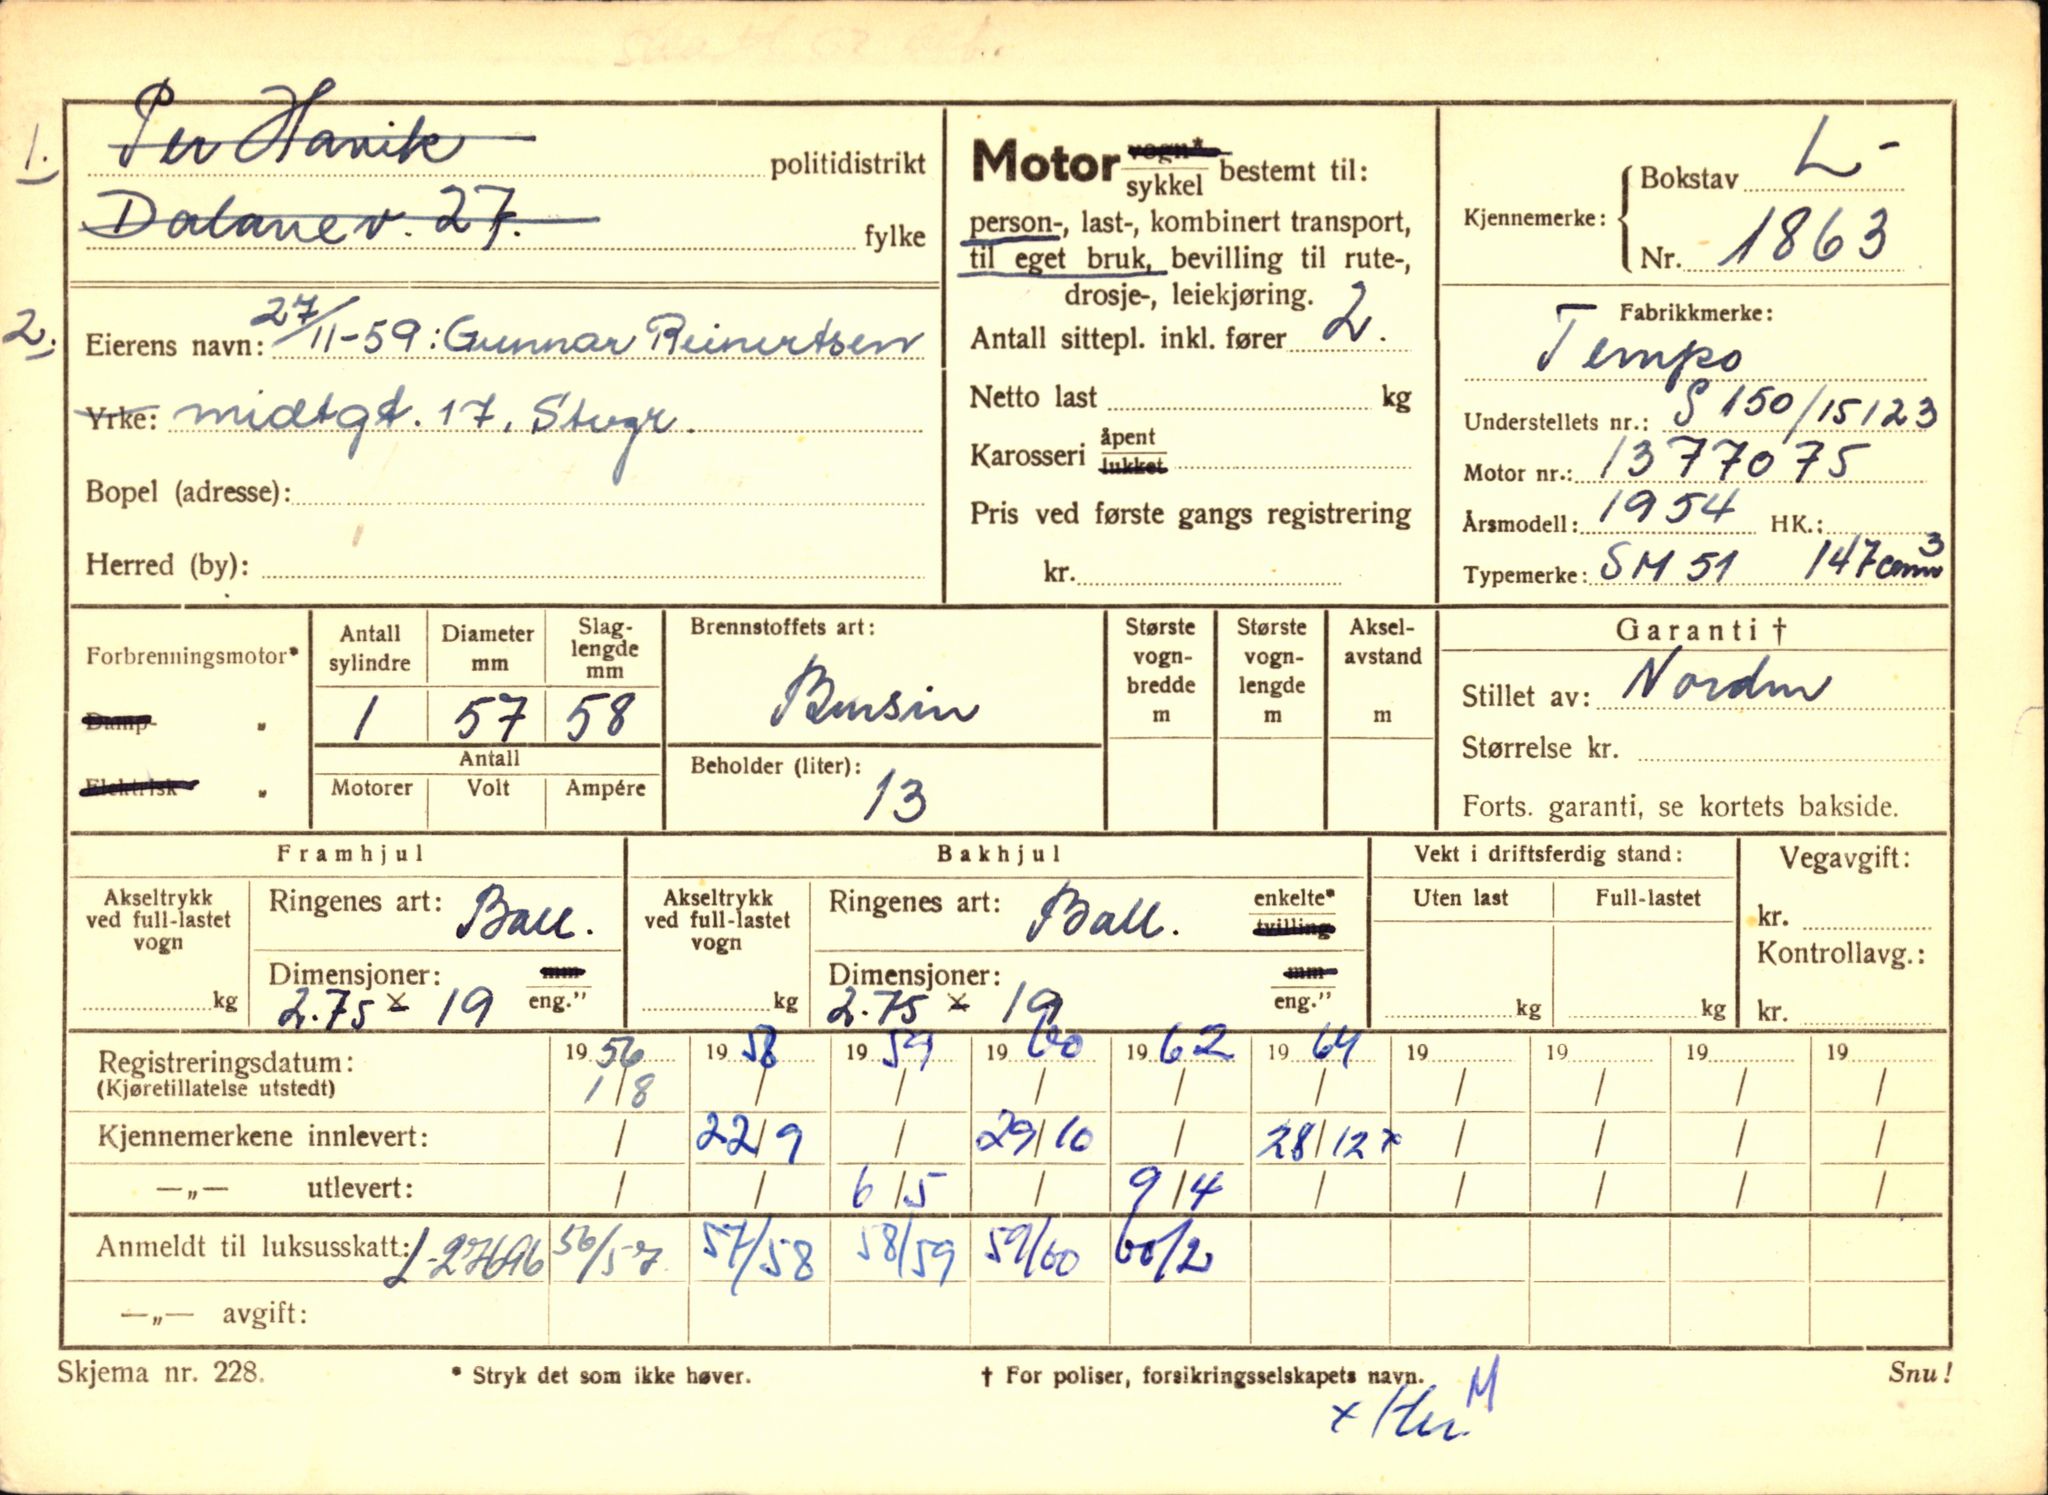 1. Per Havik politidistrikt
Dalanev. 27. fylke
2. Eierens navn: 27/11-59: Gunnar Reinertsen
Yrke: midtgt. 17, Stvgr.
Bopel (adresse):
Herred (by):
Motor vogn* / sykkel bestemt til:
person-, last-, kombinert transport,
til eget bruk, bevilling til rute-,
drosje-, leiekjøring.
Antall sittepl. inkl. fører 2.
Netto last kg
Karosseri åpent / lukket
Pris ved første gangs registrering
kr.
Kjennemerke: Bokstav L-
Nr. 1863
Fabrikkmerke:
Tempo
Understellets nr.: S 150/15123
Motor nr.: 1377075
Årsmodell: 1954 HK.:
Typemerke: SM 51 147 cm3
Forbrenningsmotor*
Damp „
Elektrisk „
Antall sylindre
1
Diameter mm
57
Slag-lengde mm
58
Antall
Motorer Volt Ampére
Brennstoffets art:
Bensin
Beholder (liter):
13
Største vogn-bredde m
Største vogn-lengde m
Aksel-avstand m
Garanti †
Stillet av: Nordm
Størrelse kr.
Forts. garanti, se kortets bakside.
Framhjul
Akseltrykk ved full-lastet vogn
kg
Ringenes art: Ball.
Dimensjoner: mm
2.75 x 19 eng.”
Bakhjul
Akseltrykk ved full-lastet vogn
kg
Ringenes art: Ball. enkelte* tvilling
Dimensjoner: mm
2.75 x 19 eng.”
Vekt i driftsferdig stand:
Uten last Full-lastet
kg kg
Vegavgift:
kr.
Kontrollavg.:
kr.
Registreringsdatum: 19 56 19 58 19 59 19 60 19 62 19 64 19 19 19 19
(Kjøretillatelse utstedt) 1/8 / / / / / / / / /
Kjennemerkene innlevert: / 22/9 / 29/10 / 28/12 x / / / /
—„— utlevert: / / 6/5 / 9/4 / / / / /
Anmeldt til luksusskatt: 56/57 57/58 58/59 59/60 60/2
—„— avgift:
Skjema nr. 228.
* Stryk det som ikke høver.
† For poliser, forsikringsselskapets navn.
Snu!